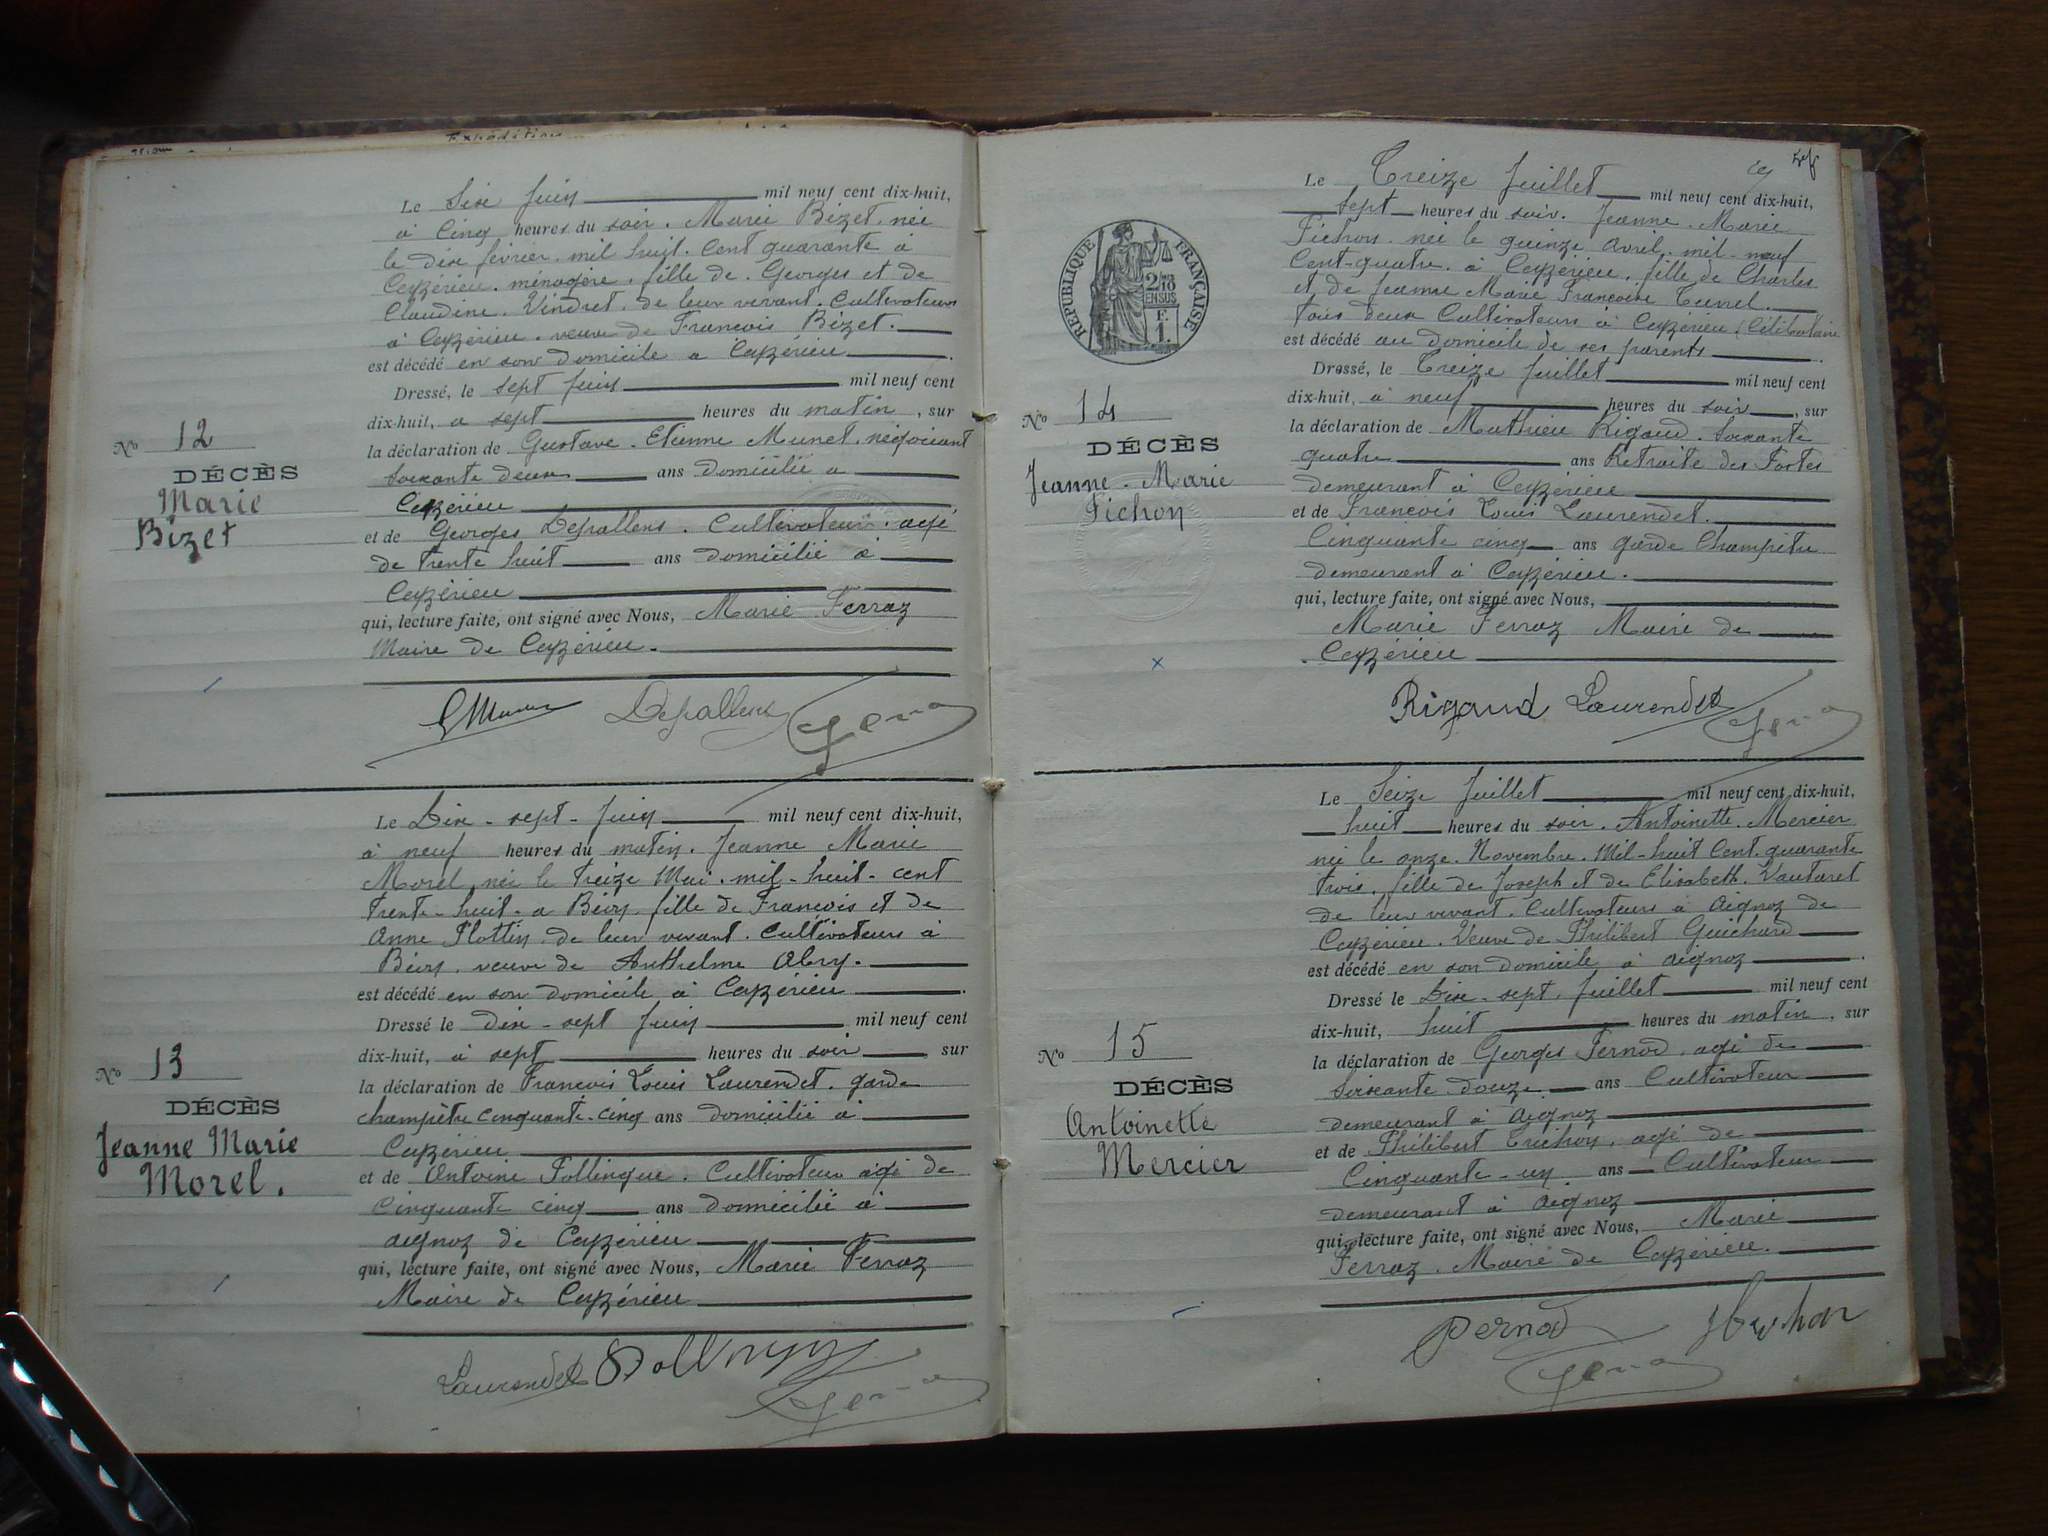 Expédition
Le Six Juin mil neuf cent dix-huit,
à Cinq heures du soir. Marie Bizet, née
le dix février mil huit cent quarante à
Ceyzérieu. ménagère, fille de Georges et de
Claudine Vindret, de leur vivant Cultivateurs
à Ceyzérieu, veuve de François Bizet.
est décédé en son domicile à Ceyzérieu
Dressé, le sept Juin mil neuf cent
dix-huit, à sept heures du matin, sur
la déclaration de Gustave Etienne Munet, négociant
Soixante deux ans domicilié à
Ceyzérieu
et de Georges Depallens. Cultivateur, agé
de trente huit ans domicilié à
Ceyzérieu
qui, lecture faite, ont signé avec Nous, Marie Ferraz
Maire de Ceyzérieu.
No 12
DÉCÈS
Marie
Bizet
Depallens
Le Dix-sept Juin mil neuf cent dix-huit,
à neuf heures du matin. Jeanne Marie
Morel, née le treize Mai mil-huit-cent
trente-huit à Béon, fille de François et de
Anne Plottin de leur vivant Cultivateurs à
Béon, veuve de Anthelme Abry.
est décédé en son domicile à Ceyzérieu
Dressé le dix-sept Juin mil neuf cent
dix-huit, à sept heures du soir sur
la déclaration de François Louis Laurendet. garde
champêtre cinquante-cinq ans domicilié à
Ceyzérieu
et de Antoine Pollingue. Cultivateur agé de
Cinquante cinq ans domicilié à
aignoz de Ceyzérieu
qui, lecture faite, ont signé avec Nous, Marie Ferraz
Maire de Ceyzérieu
No 13
DÉCÈS
Jeanne Marie
Morel.
Laurendet
Le Treize Juillet mil neuf cent dix-huit,
sept heures du soir. Jeanne-Marie
Pichon née le quinze avril mil-neuf
Cent-quatre à Ceyzérieu, fille de Charles
et de Jeanne Marie Françoise
tous deux Cultivateurs à Ceyzérieu, Célibataire
est décédé au domicile de ses parents
Dressé, le Treize Juillet mil neuf cent
dix-huit, à neuf heures du soir, sur
la déclaration de Mathieu Rigaud. Soixante
quatre ans Retraité des Postes
demeurant à Ceyzérieu
et de François Louis Laurendet.
Cinquante cinq ans garde Champêtre
demeurant à Ceyzérieu.
qui, lecture faite, ont signé avec Nous,
Marie Ferraz Maire de
Ceyzérieu
RÉPUBLIQUE FRANÇAISE
2/10
EN SUS
F.
1.
No 14
DÉCÈS
Jeanne-Marie
Pichon
Rigaud Laurendet
Le Seize Juillet mil neuf cent dix-huit,
huit heures du soir. Antoinette Mercier
née le onze Novembre Mil-huit Cent quarante
trois, fille de Joseph et de Elisabeth Vautaret
de leur vivant Cultivateurs à aignoz de
Ceyzérieu. Veuve de Philibert Guichard
est décédé en son domicile à aignoz
Dressé le Dix-sept Juillet mil neuf cent
dix-huit, huit heures du matin, sur
la déclaration de Georges Pernod, agé de
Soixante douze ans Cultivateur
demeurant à aignoz
et de Philibert Trichon, agé de
Cinquante-un ans Cultivateur
demeurant à aignoz
qui, lecture faite, ont signé avec Nous, Marie
Ferraz. Maire de Ceyzérieu.
No 15
DÉCÈS
Antoinette
Mercier
Pernod